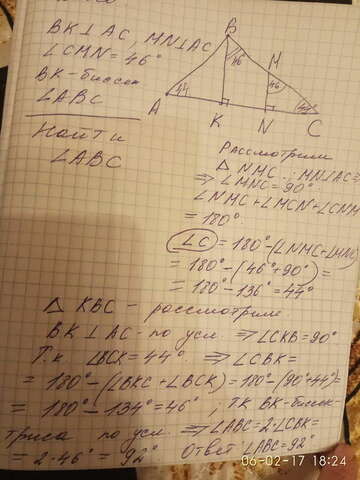 BK⊥AC, MN⊥AC
∠CMN = 46°
BK - биссек
∠ABC
Найти
∠ABC
B
46
M
46
A
44
K
N
44°
C
Рассмотрим
△ NMC .; MN⊥AC ⇒
⇒ ∠MNC = 90°
∠NMC + ∠MCN + ∠CNM
= 180°
∠C = 180° - (∠NMC + ∠MNC)
= 180° - (46° + 90°) =
= 180° - 136° = 44°
△ KBC - рассмотрим
BK ⊥ AC - по усл. ⇒ ∠CKB = 90°
Т.к ∠BCK = 44° ⇒ ∠CBK =
= 180° - (∠BKC + ∠BCK) = 180° - (90° + 44°) =
= 180° - 134° = 46° , ТК BK - биссек-
триса по усл ⇒ ∠ABC = 2·∠CBK =
= 2·46° = 92° Ответ: ∠ABC = 92°
06-02-17 18:24